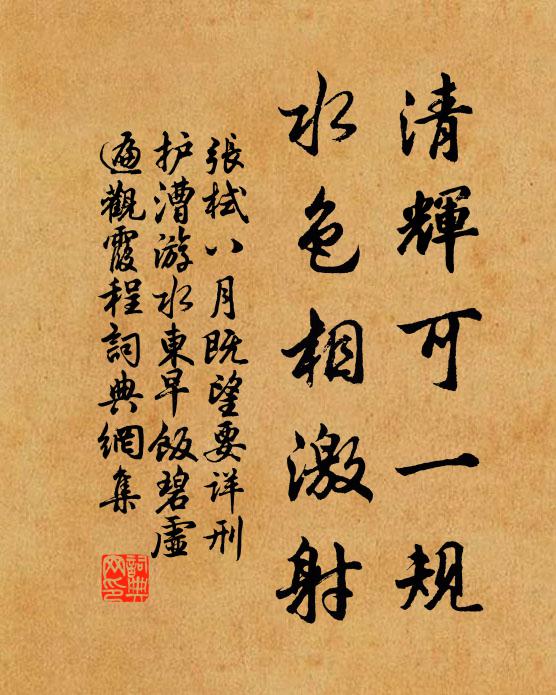 清輝可一規
水色相激射
張栻八月既望要详刑
护漕游水東早飯碧虛
遍觀霞程詞典網集
詞典网印